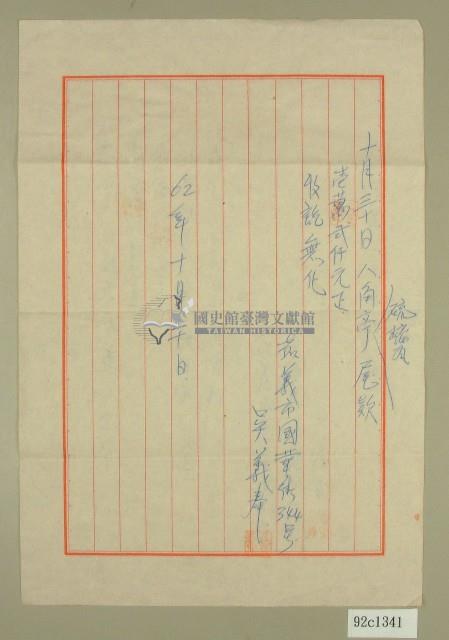 十月三十日 八角亭 尾款
壹萬弍仟元正
收訖無化
嘉義市國華街344号
吳義奉
62年十月三十日
國史館臺灣文獻館
TAIWAN HISTORICA
92c1341